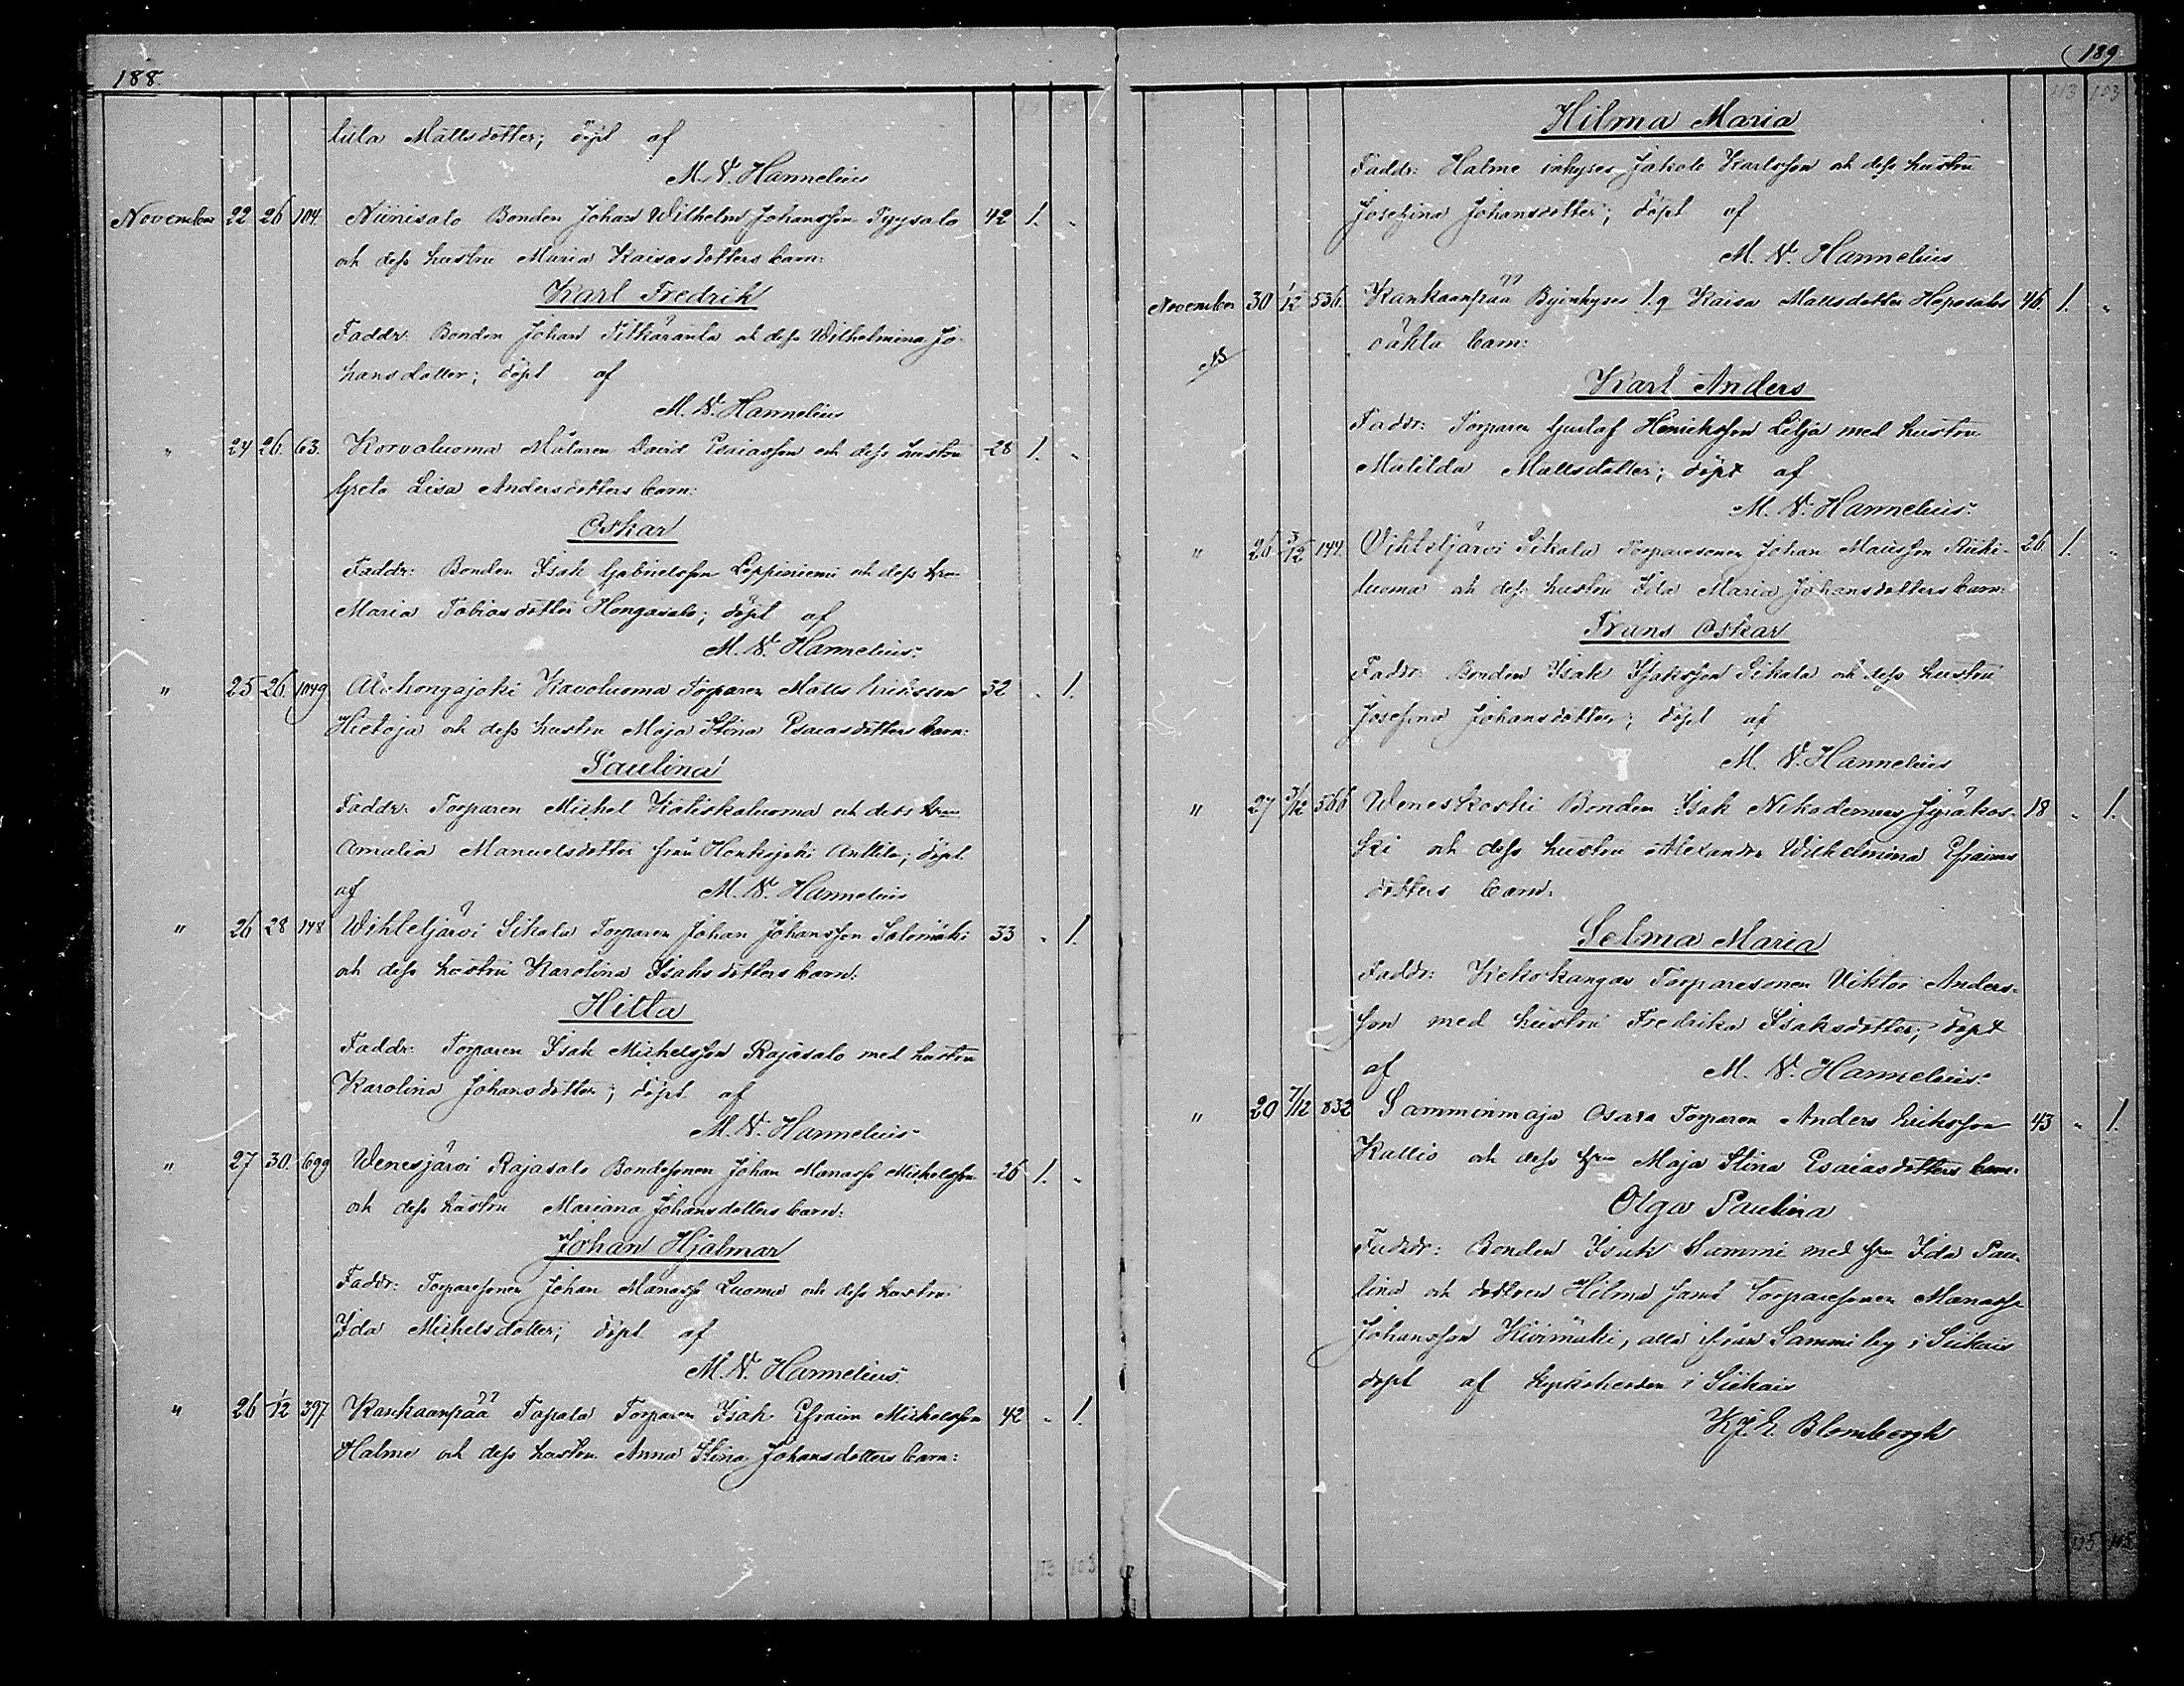 188.
lula Mattsdotter; döpt af
M. N. Hannelius
November 22 26 104. Niinisalo Bonden Johan Wilhelm Johansson Pyysalo 42 1. "
och dess hustru Maria Kaisasdotters barn:
Karl Fredrik
Faddr: Bonden Johan Pitkäranta och dess Wilhelmina Jo-
hansdotter; döpt af
M. N. Hannelius
" 24 26. 63. Korvaluoma Målaren David Esaiasson och dess hustru 28 1. "
Greta Lisa Andersdotters barn:
Oskar
Faddr: Bonden Isak Gabrielsson Leppiniemi och dess hru
Maria Tobiasdotter Hongasalo; döpt af
M. N. Hannelius.
" 25 26 1049 Alahongajoki Kavoluoma Torparen Matts Eriksson 32 " 1.
Hietoja och dess hustru Maja Stina Esaiasdotters barn:
Paulina
Faddr: Torparen Michel Katiskoluoma och dess hru
Amalia Manuelsdotter från Honkajoki Anttila; döpt
af M. N. Hannelius
" 26 28 148 Wihteljärvi Sikala Torparen Johan Johansson Salomäki 33 " 1.
och dess hustru Karolina Isaksdotters barn:
Hilta
Faddr: Torparen Isak Michelsson Rajasalo med hustru
Karolina Johansdotter; döpt af
M. N. Hannelius
" 27 30. 699 Wenesjärvi Rajasalo Bondesonen Johan Manasse Michelsson 26 1. "
och dess hustru Mariana Johansdotters barn:
Johan Hjalmar
Faddr: Torparesonen Johan Manasse Luoma och dess hustru
Ida Michelsdotter; döpt af
M. N. Hannelius.
" 26 1/12 397 Kankaanpää Tapala Torparen Isak Efraim Michelsson 42 " 1.
Halme och dess hustru Anna Stina Johansdotters barn:
113 103
189
113 103
Hilma Maria
Faddr: Halme inhyses Jakob Karlsson och dess hustru
Josefina Johansdotter; döpt af
M. N. Hannelius
November 30 1/12 536. Kankaanpää Byinhyses l. q Kaisa Mattsdotter Heposalos 46. 1. "
oäkta barn:
Karl Anders
Faddr: Torparen Gustaf Henriksson Lilja med hustru
Matilda Mattsdotter; döpt af
M. N. Hannelius.
" 26 3/12 144. Wihteljärvi Sikala Torparesonen Johan Mattsson 26. 1. "
luoma och dess hustru Ida Maria Johansdotters barn:
Frans Oskar
Faddr: Bonden Isak Isaksson Sikala och dess hustru
Josefina Johansdotter; döpt af
M. N. Hannelius
" 27 3/12 566 Weneskoski Bonden Isak Nikodemus Jyräkos- 18 " 1.
ki och dess hustru Alexandra Wilhelmina Efraims
dotters barn:
Selma Maria
Faddr: Kekokangas Torparesonen Viktor Anders-
son med hustru Fredrika Isaksdotter; döpt
af M. N. Hannelius.
" 20 7/12 832 Samminmaja Osara Torparen Anders Eriksson 43 " 1.
Kallio och dess hru Maja Stina Esaiasdotters barn:
Olga Paulina
Faddr: Bonden Isak Sammi med hru Ida Pau-
lina och dottren Hilma samt Torparesonen Manasse
Johansson Kivimäki, alla ifrån Sammi by i Siikais
döpt af kyrkoherden i Siikais
K. J. E. Blombergh
115 105